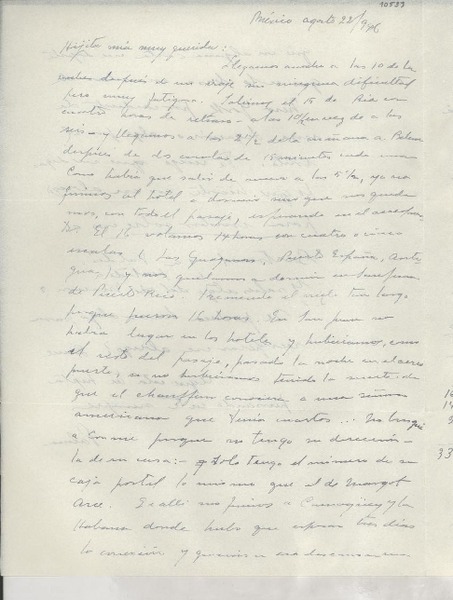 10537
México agosto 22/946
Hijita mía muy querida:
Llegamos anoche a las 10 de la
noche después de un viaje sin ninguna dificultad
pero muy fatigoso. Salimos el 15 de Río con
cuatro horas de retraso - a las 10 en vez de a las
seis - y llegamos a las 2 1/2 de la mañana a Belem
después de dos escalas de 15 minutos cada una
Como había que salir de nuevo a las 5 1/2, ya no
fuimos al hotel a dormir sino que nos queda
mos, con todo el pasaje, esperando en el aeropuer
to. El 16 volamos 14 horas con cuatro o cinco
escalas
La Guayana, Puerto España,
y nos quedamos a dormir en San Juan
de Puerto Rico. Tremendo el vuelo tan largo
porque fueron 16 horas. En San Juan no
había lugar en los hoteles y hubiéramos, como
el resto del pasaje, pasado la noche en el aero
puerto, si no hubiéramos tenido la suerte de
que el chauffeur conociera a una señora
americana que tenía cuartos... No busqué
a Connie porque no tengo su dirección -
la de su casa: - Sólo tengo el número de su
caja postal lo mismo que el de Margot
Arce. De allí nos fuimos a Camagüey y la
Habana donde hubo que esperar tres días
la conexión y